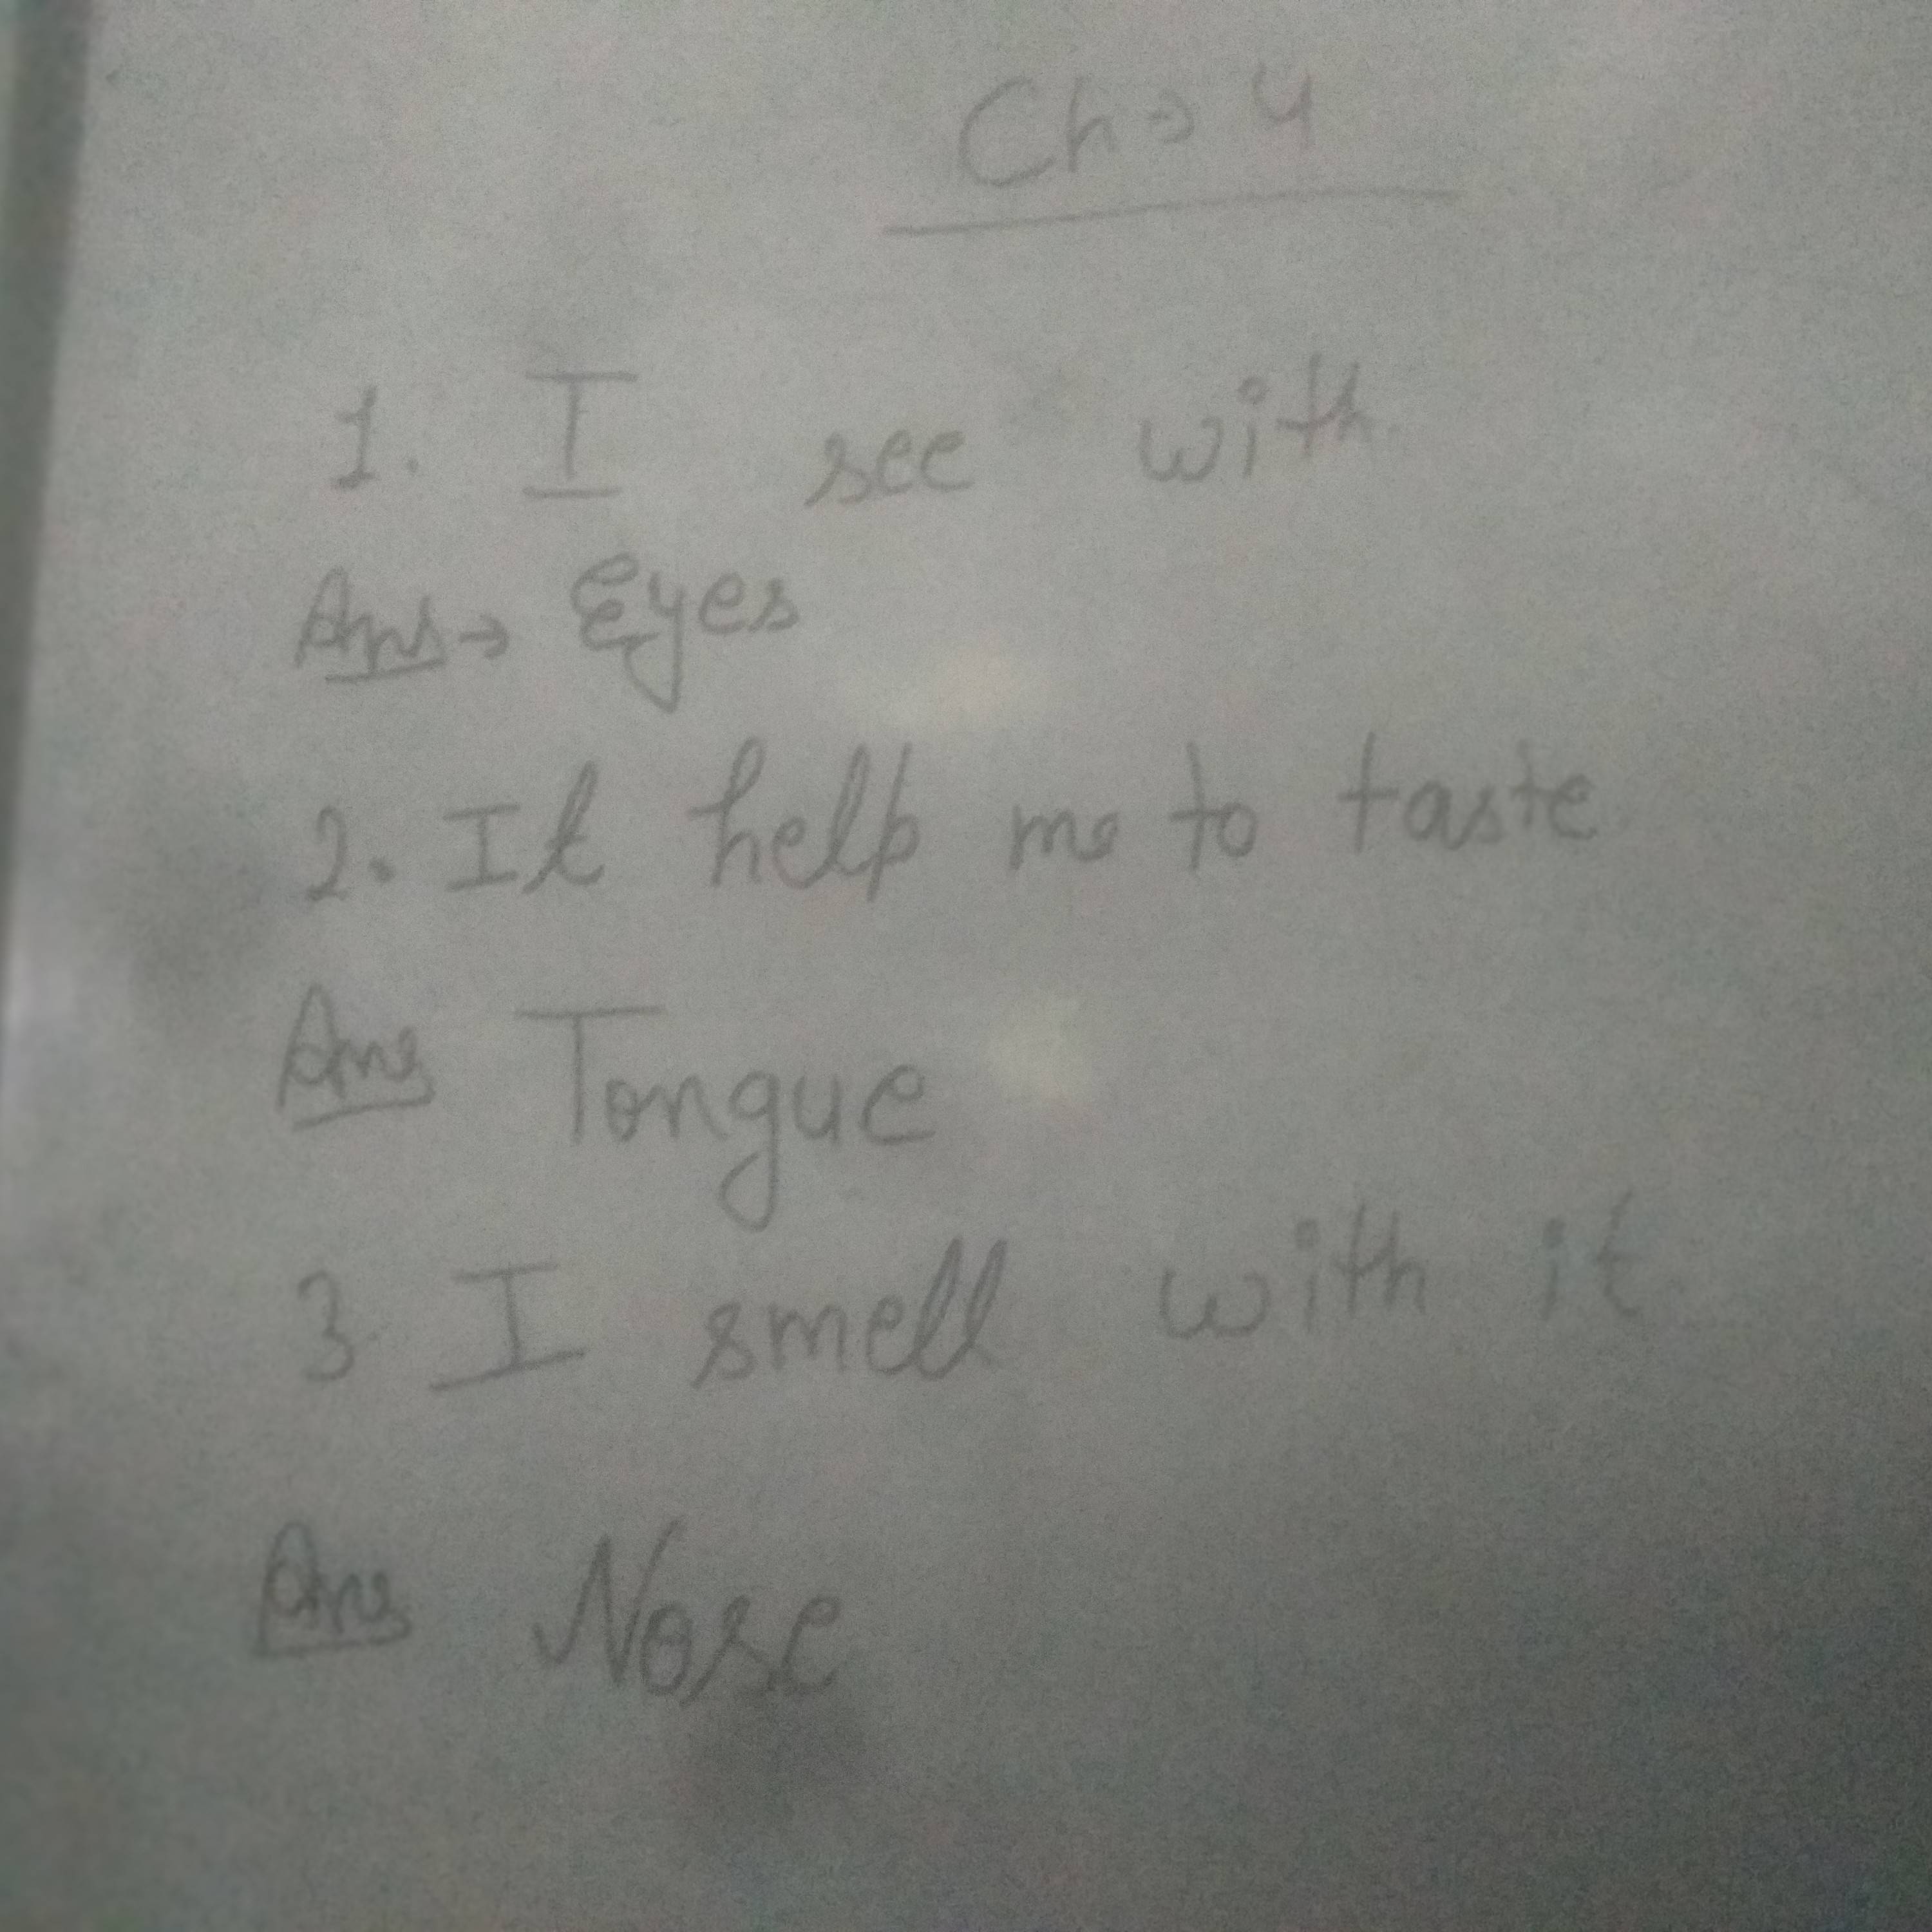 Ch → 4
1. I see with
Ans → Eyes
2. It help me to taste
Ans Tongue
3. I smell with it
Ans Nose